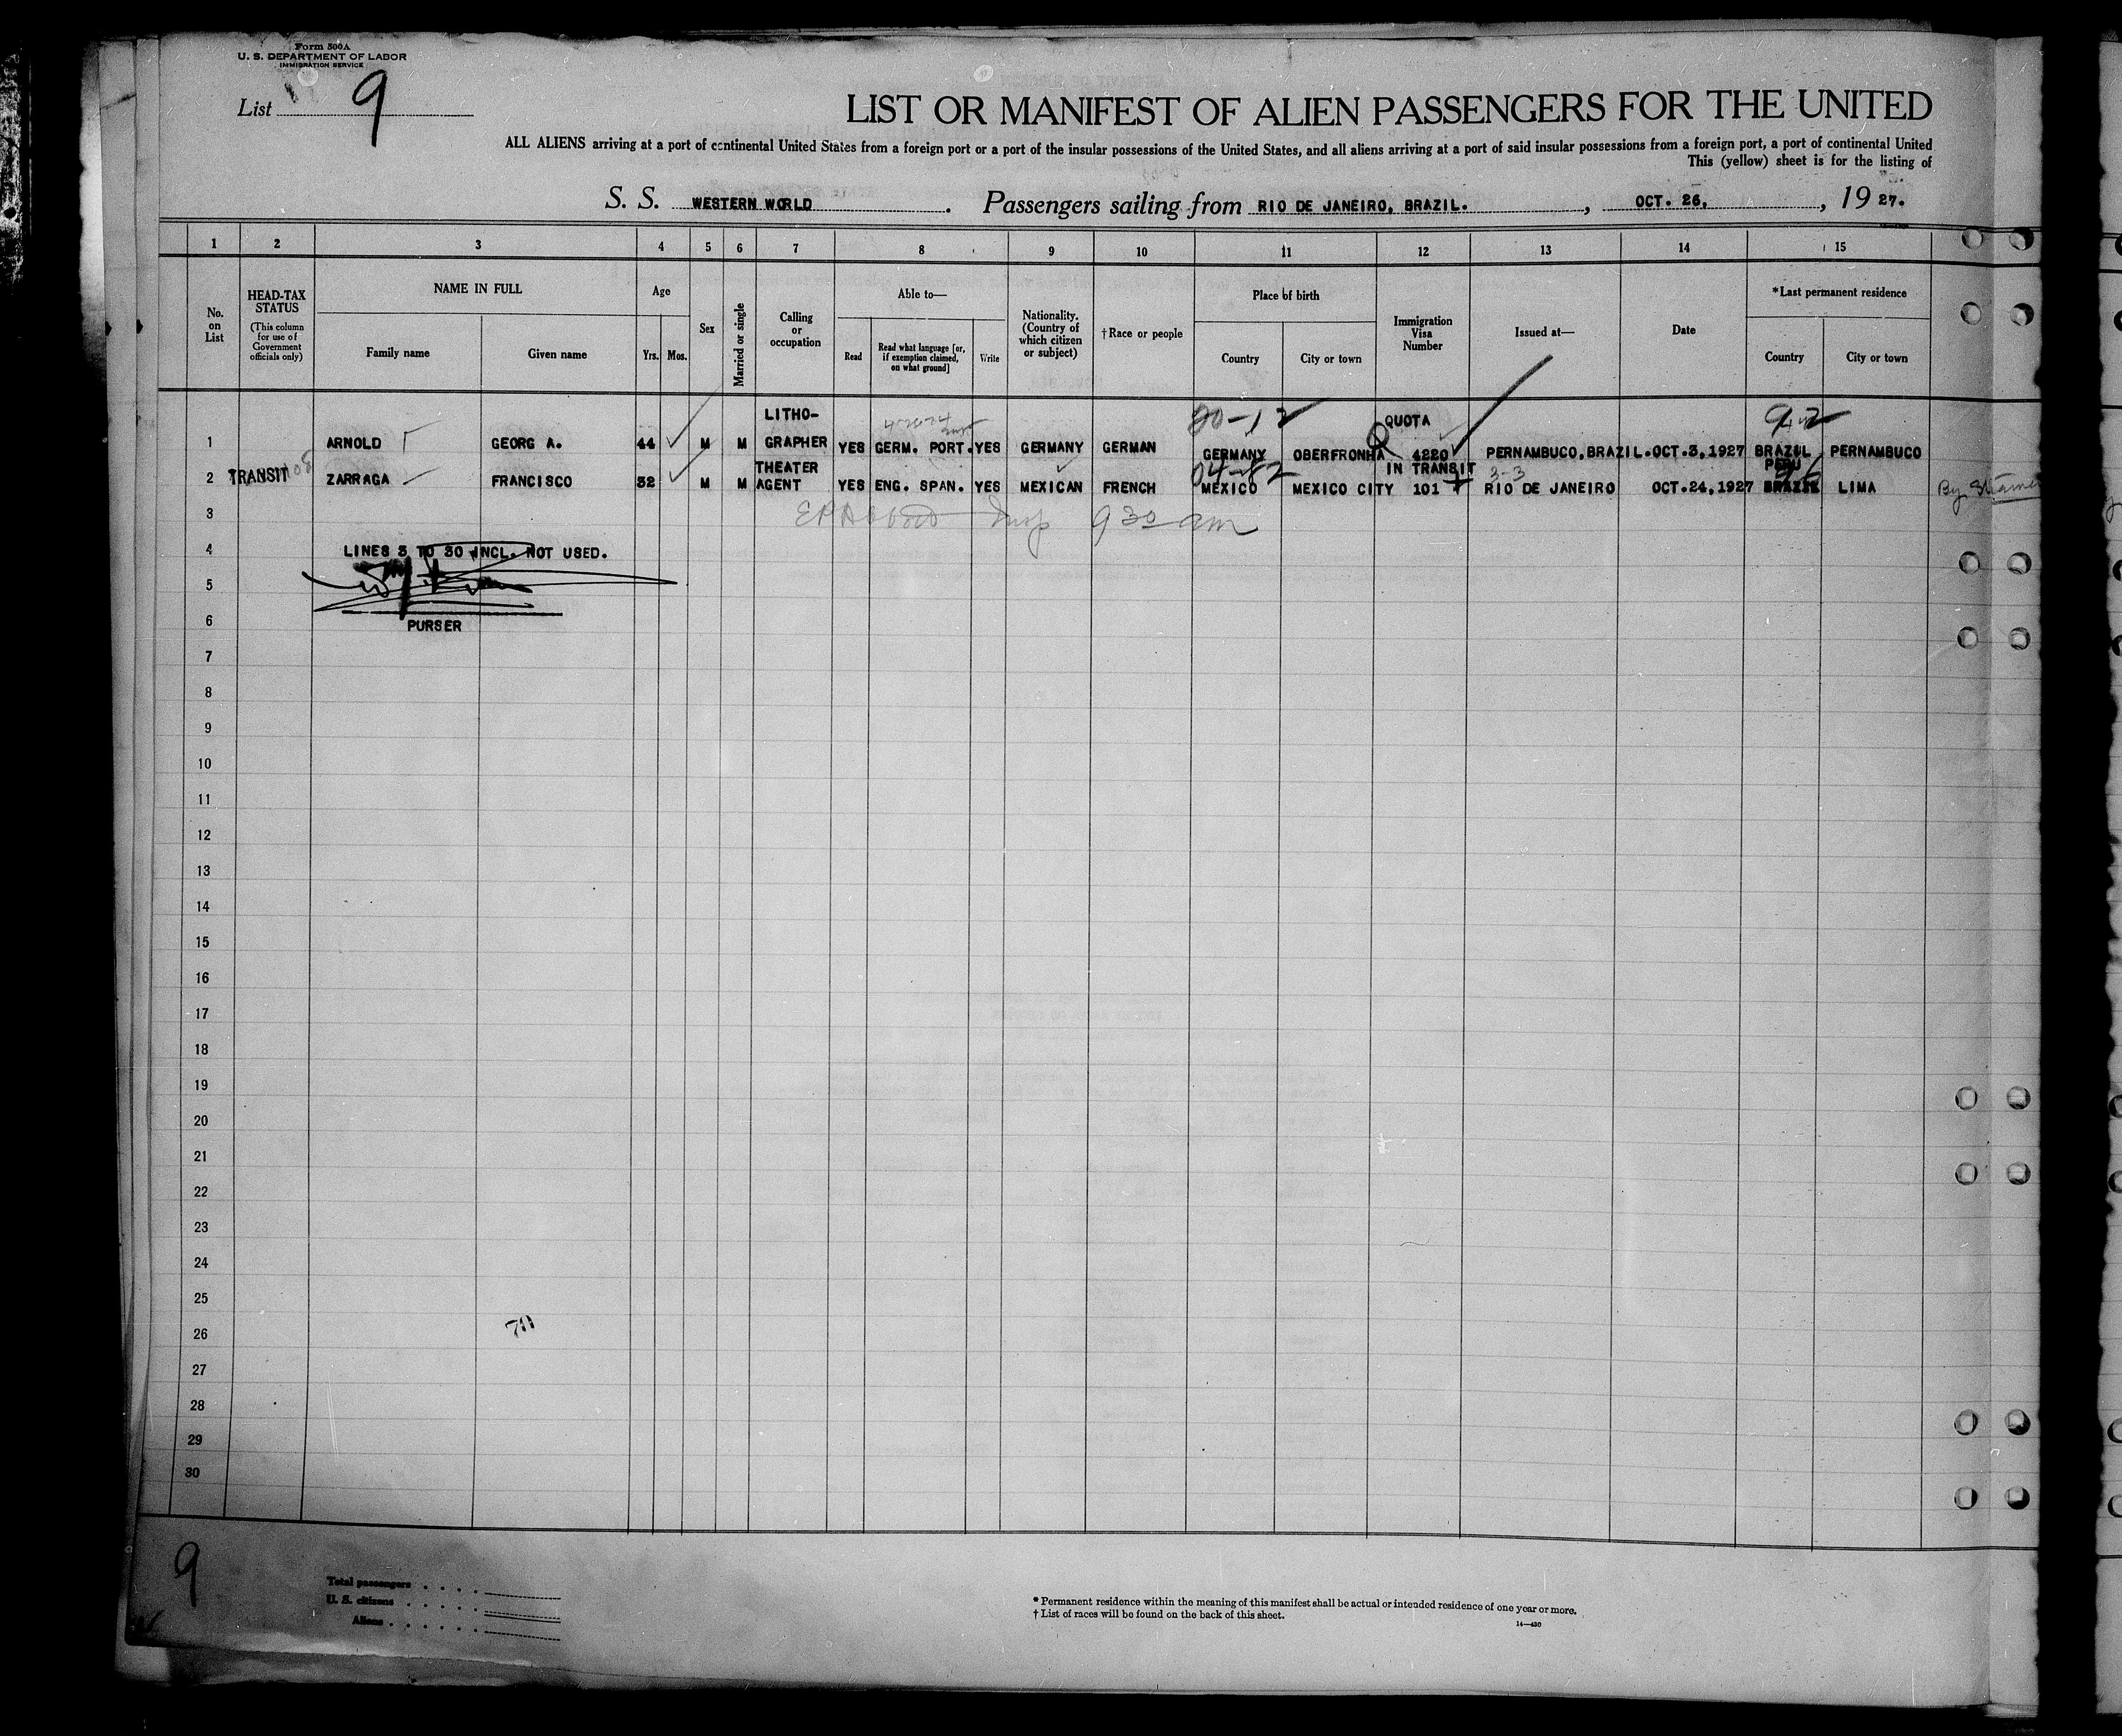 Form 500A
U. S. DEPARTMENT OF LABOR
IMMIGRATION SERVICE
List 9
LIST OR MANIFEST OF ALIEN PASSENGERS FOR THE UNITED
ALL ALIENS arriving at a port of continental United States from a foreign port or a port of the insular possessions of the United States, and all aliens arriving at a port of said insular possessions from a foreign port, a port of continental United
This (yellow) sheet is for the listing of
S. S. WESTERN WORLD. Passengers sailing from RIO DE JANEIRO, BRAZIL. , OCT. 26, , 19 27.
1 2 3 4 5 6 7 8 9 10 11 12 13 14 15
No. on List
HEAD-TAX STATUS
(This column for use of Government officials only)
NAME IN FULL
Family name
Given name
Age
Yrs. Mos.
Sex
Married or single
Calling or occupation
Able to—
Read
Read what language [or, if exemption claimed, on what ground]
Write
Nationality. (Country of which citizen or subject)
†Race or people
Place of birth
Country
City or town
Immigration Visa Number
Issued at—
Date
*Last permanent residence
Country
City or town
1 ARNOLD GEORG A. 44 M M LITHO-GRAPHER YES GERM. PORT. YES GERMANY GERMAN GERMANY OBERFRONHA QUOTA 4220 PERNAMBUCO, BRAZIL. OCT. 3, 1927 BRAZIL PERNAMBUCO
2 TRANSIT ZARRAGA FRANCISCO 32 M M THEATER AGENT YES ENG. SPAN. YES MEXICAN FRENCH MEXICO MEXICO CITY IN TRANSIT 101 RIO DE JANEIRO OCT. 24, 1927 PERU BRAZIL LIMA
20-12
04-82
3-3
By Steamer
3 Insp 9 30 am
4 LINES 3 TO 30 INCL. NOT USED.
5
6 PURSER
7
8
9
10
11
12
13
14
15
16
17
18
19
20
21
22
23
24
25
26
27
28
29
30
9
Total passengers
U. S. citizens
Aliens
* Permanent residence within the meaning of this manifest shall be actual or intended residence of one year or more.
† List of races will be found on the back of this sheet.
14—430